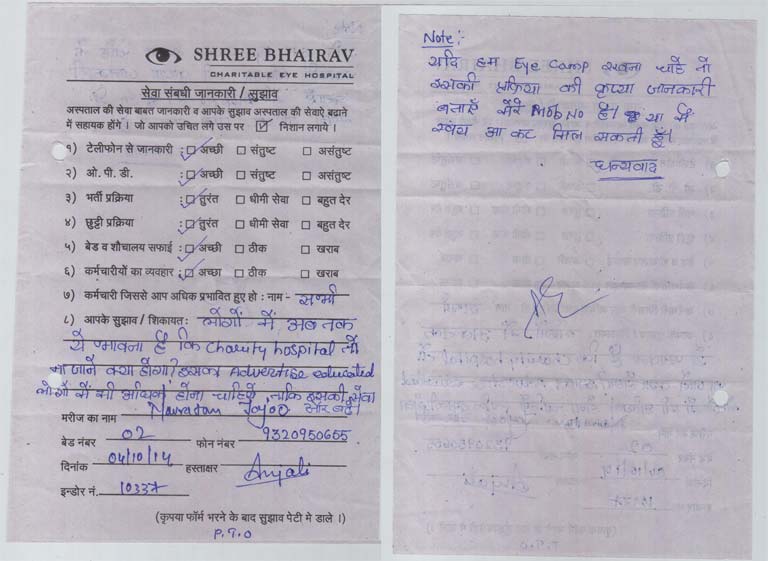 SHREE BHAIRAV
CHARITABLE EYE HOSPITAL
सेवा संबधी जानकारी / सुझाव
अस्पताल की सेवा बाबत जानकारी व आपके सुझाव अस्पताल की सेवाऐ बढाने
में सहायक होंगे । जो आपको उचित लगे उस पर ☑ निशान लगाये ।
१) टेलीफोन से जानकारी : ☑ अच्छी ☐ संतुष्ट ☐ असंतुष्ट
२) ओ. पी. डी. : ☑ अच्छी ☐ संतुष्ट ☐ असंतुष्ट
३) भर्ती प्रक्रिया : ☑ तुरंत ☐ धीमी सेवा ☐ बहुत देर
४) छुट्टी प्रक्रिया : ☑ तुरंत ☐ धीमी सेवा ☐ बहुत देर
५) बेड व शौचालय सफाई : ☑ अच्छी ☐ ठीक ☐ खराब
६) कर्मचारीयों का व्यवहार : ☑ अच्छा ☐ ठीक ☐ खराब
७) कर्मचारी जिससे आप अधिक प्रभावित हुए हो : नाम - सभी
८) आपके सुझाव / शिकायत: लोगों में अब तक
ये भावना है कि Charity hospital में
ना जाने क्या होगा? इसका Advertise educated
लोगों में भी अधिक होना चाहिये, ताकि इसकी सेवा
और बढे।
मरीज का नाम Navratan
बेड नंबर 02 फोन नंबर 9320950655
दिनांक 04/10/14 हस्ताक्षर Anjali
इन्डोर नं. 10337
(कृपया फॉर्म भरने के बाद सुझाव पेटी मे डाले ।)
P.T.O
Note:-
यदि हम Eye Camp रखना चाहें तो
इसकी प्रक्रिया की कृप्या जानकारी
बताएँ मेरे Mob No है। या मैं
स्वंय आ कर मिल सकती हूँ।
धन्यवाद